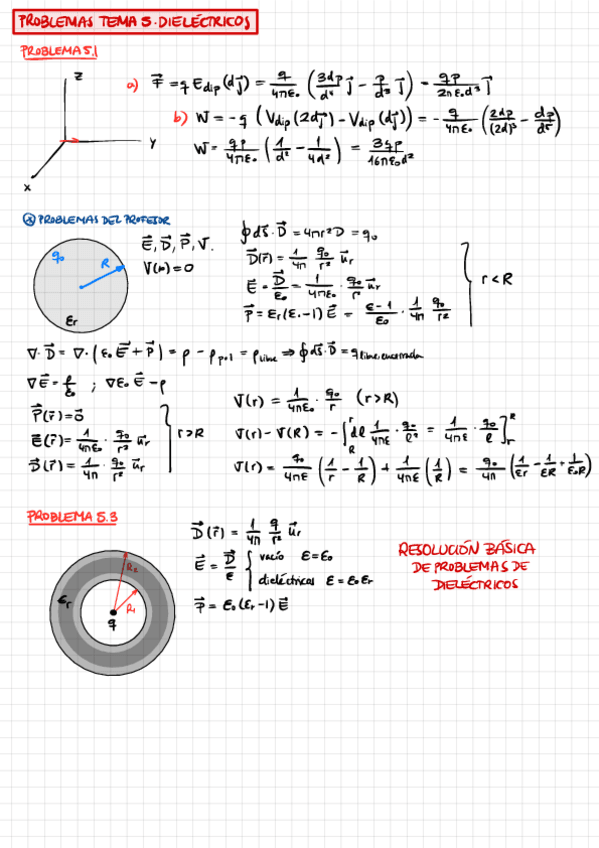 PROBLEMAS TEMA 5. DIELÉCTRICOS
PROBLEMA 5.1
Z
Y
X
a) F⃗ = q E_dip (dj⃗) = q/4πε₀ (3dp/d⁴ j⃗ − p/d³ j⃗) − qp/2πε₀d³ j⃗
b) W = −q (V_dip(2dj⃗) − V_dip(dj⃗)) = − q/4πε₀ (2dp/(2d)³ − dp/d³)
W = qp/4πε₀ (1/d² − 1/4d²) = 3qp/16πε₀d²
PROBLEMAS DEL PROFESOR
q₀
R
εr
E⃗, D⃗, P⃗, V.
V(∞) = 0
∮ds⃗·D⃗ = 4πr²D = q₀
D⃗(r⃗) = 1/4π q₀/r² u⃗r
E⃗ = D⃗/ε₀ = 1/4πε₀ · q₀/r² u⃗r
P⃗ = εr(ε.−1)E⃗ = ε−1/ε₀ · 1/4π q₀/r²
r < R
∇·D⃗ = ∇·(ε₀E⃗ + P⃗) = ρ − ρpol = ρlibre ⇒ ∮ds⃗·D⃗ = q libre encerrada
∇E⃗ = ρ/ε₀ ; ∇ε₀E⃗ − ρ
P⃗(r⃗) = 0⃗
E⃗(r⃗) = 1/4πε₀ · q₀/r² u⃗r
D⃗(r⃗) = 1/4π · q₀/r² u⃗r
r > R
V(r) = 1/4πε₀ · q₀/r (r > R)
V(r) − V(R) = −∫_R^r dl 1/4πε · q₀/l² = 1/4πε · q₀/l ]_r^R
V(r) = q₀/4πε (1/r − 1/R) + 1/4πε (1/R) = q₀/4π (1/εr − 1/εR + 1/ε₀R)
PROBLEMA 5.3
R₂
εr
R₁
q
D⃗(r⃗) = 1/4π q/r² u⃗r
E⃗ = D⃗/ε { vacío ε = ε₀
dieléctricos ε = ε₀εr
P⃗ = ε₀(εr − 1)E⃗
RESOLUCIÓN BÁSICA
DE PROBLEMAS DE
DIELÉCTRICOS